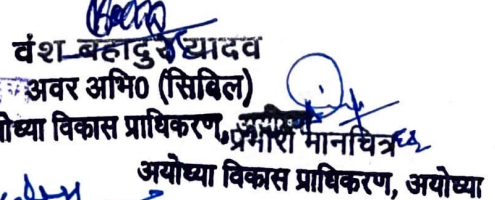 वंश बहादुर यादव
अवर अभि0 (सिविल)
ोध्या विकास प्राधिकरण,
प्रभारी मानचित्र
अयोध्या विकास प्राधिकरण, अयोध्या